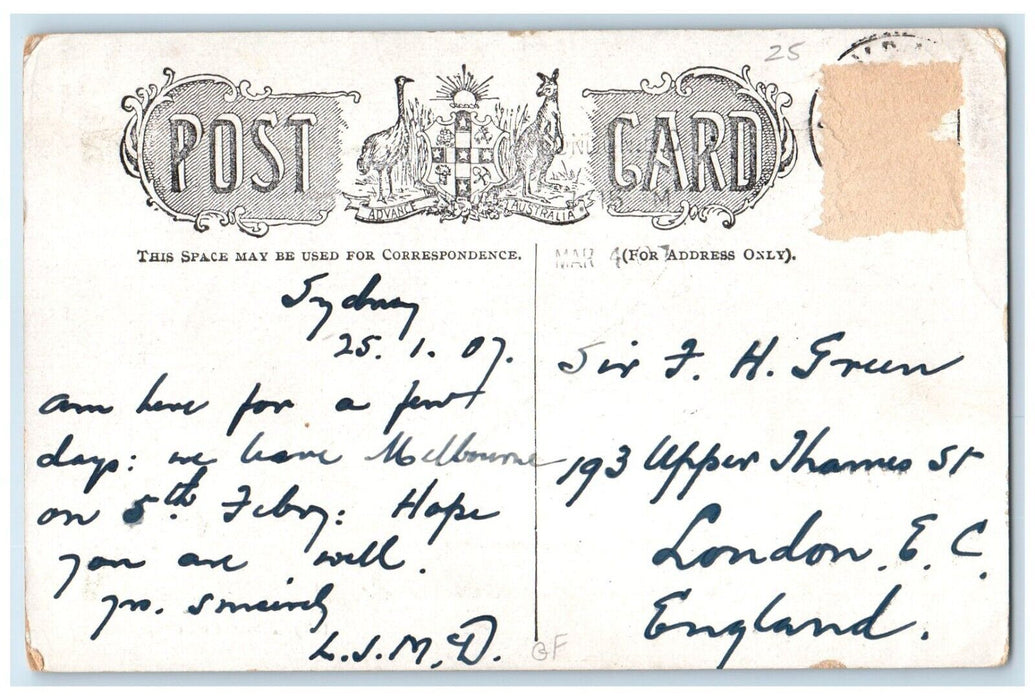 25
POST CARD
ADVANCE AUSTRALIA
THIS SPACE MAY BE USED FOR CORRESPONDENCE.
MAR 4 07
(FOR ADDRESS ONLY).
Sydney
25. 1. 07.
am here for a few
days: we leave Melbourne
on 5th Febry: Hope
you are well.
yrs. sincerely
L.J.M.D.
Sir F. H. Green
193 Upper Thames St
London. E. C.
England.
GF